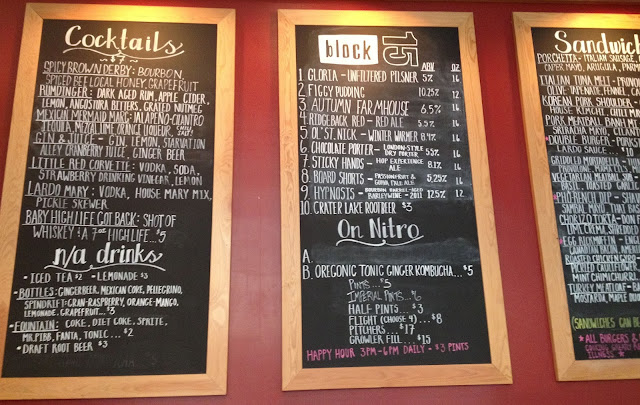 Cocktails
$7
SPICY BROWN DERBY: BOURBON,
SPICED BEE LOCAL HONEY, GRAPEFRUIT
RUMDINGER: DARK AGED RUM, APPLE CIDER,
LEMON, ANGOSTURA BITTERS, GRATED NUTMEG
MEXICIN MERMAID MARG: JALAPEÑO-CILANTRO
TEQUILA, MEZCAL, LIME, ORANGE LIQUEUR
GIN & JUICE - GIN, LEMON, STARVATION
ALLEY CRANBERRY JUICE, GINGER BEER
LITTLE RED CORVETTE: VODKA, SODA,
STRAWBERRY DRINKING VINEGAR, LEMON
LARDO MARY: VODKA, HOUSE MARY MIX,
PICKLE SKEWER
BABY HIGH LIFE GOT BACK: SHOT OF
WHISKEY & A 7oz HIGH LIFE...$5
n/a drinks
• ICED TEA $2 • LEMONADE $3
• BOTTLES: GINGERBEER, MEXICAN COKE, PELLEGRINO,
SPINDRIFT: CRAN-RASPBERRY, ORANGE-MANGO,
LEMONADE, GRAPEFRUIT... $3
• FOUNTAIN: COKE, DIET COKE, SPRITE,
MR. PIBB, FANTA, TONIC... $2
• DRAFT ROOT BEER $3
block 15 ABV OZ
1. GLORIA - UNFILTERED PILSNER 5% 16
2. FIGGY PUDDING 10.25% 12
3. AUTUMN FARMHOUSE 6.5% 16
4. RIDGEBACK RED - RED ALE 5.5% 16
5. OL' ST. NICK - WINTER WARMER 8.4% 16
6. CHOCOLATE PORTER - LONDON-STYLE DRY PORTER 16
7. STICKY HANDS - HOP EXPERIENCE ALE 8.1% 16
8. BOARD SHORTS - PASSIONFRUIT & GUAVA PALE ALE 5.25% 16
9. HYPNOSIS - BOURBON BARREL-AGED BARLEYWINE - 2011 12.5% 12
10. CRATER LAKE ROOTBEER $3
On Nitro
A.
B. OREGONIC TONIC GINGER KOMBUCHA... $5
PINTS... $5
IMPERIAL PINTS...
HALF PINTS... $3
FLIGHT (CHOOSE 4)... $8
PITCHERS... $17
GROWLER FILL... $15
HAPPY HOUR 3PM-6PM DAILY - $3 PINTS
Sandwich
PORCHETTA -
CAPER MAYO, ARUGULA,
ITALIAN TUNA MELT -
OLIVE TAPENADE, FENNEL,
KOREAN PORK SHOULDER
HOUSE KIMCHI, CHILI
PORK MEATBALL BANH
SRIRACHA MAYO,
*DOUBLE BURGER -
LARDO SAUCE
GRIDDLED MORTADELLA -
PROVOLONE, MAMA LIL'S
VEGETARIAN
BASIL, TOASTED GARLIC
*PHO FRENCH DIP -
SAMBAL MAYO
ROASTED CHICKEN
PICKLED CAULIFLOWER,
MINT CHIMICHURRI
TURKEY MEATLOAF -
MUSTARD, MAPLE
(SANDWICHES CAN BE
*ALL BURGERS &
ILLNESS.